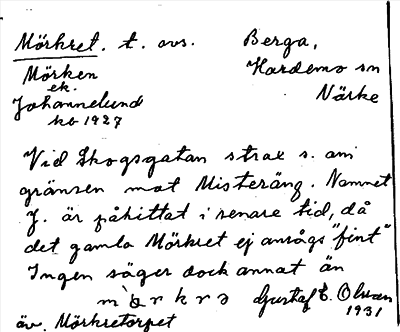 Mörkret. t. avs. Berga,
Mörken Hardemo sn
ek. Närke
Johannelund
kb 1927
Vid Skogsgatan strax s. om
gränsen mot Misteräng. Namnet
J. är påhittat i senare tid, då
det gamla Mörkret ej ansågs "fint"
Ingen säger dock annat än
Gustaf E. Olsson
1931
äv. Mörkretorpet